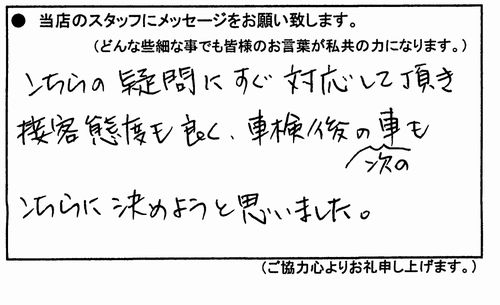 ● 当店のスタッフにメッセージをお願い致します。
（どんな些細な事でも皆様のお言葉が私共の力になります。）
こちらの疑問にすぐ対応して頂き
接客態度も良く、車検後の車も
次の
こちらに決めようと思いました。
（ご協力心よりお礼申し上げます。）